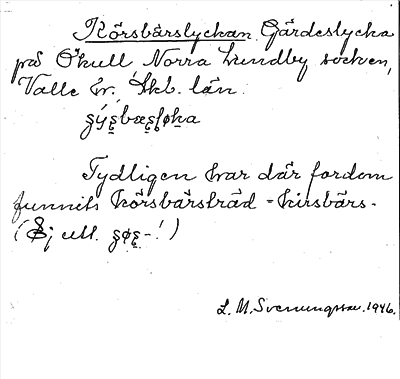 Körsbärslyckan. Gärdeslycka
på Ökull Norra Lundby socken,
Valle hr. Skb. län.
Tydligen har där fordom
funnits körsbärsträd = kirsbärs-
(Ej utt.
L. M. Svenungsson. 1946.